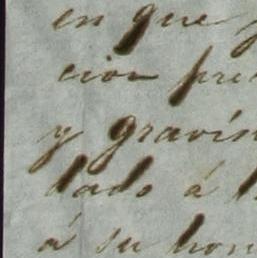 en que
cion pre
y gravís
dado á l
á su hon